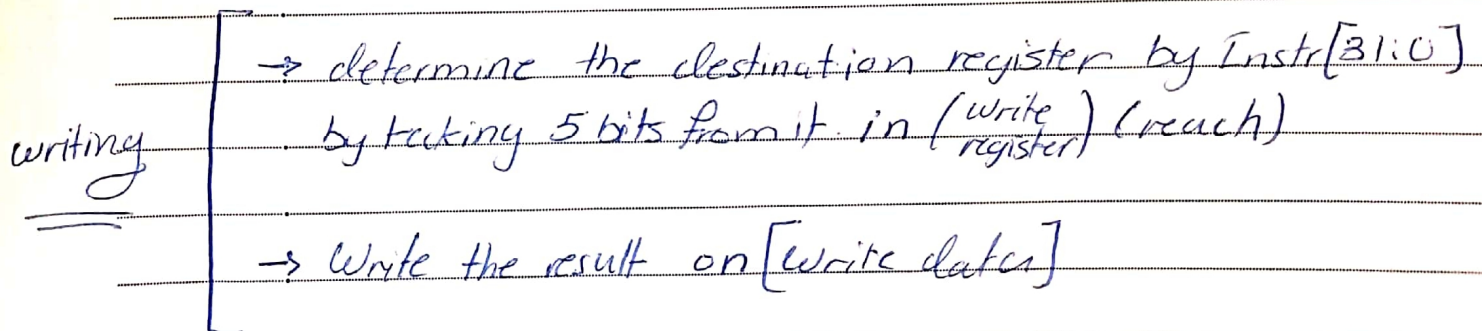 → determine the destination register by Instr[31:0]
writing by taking 5 bits from it in (write register) (reach)
→ Write the result on [write data]